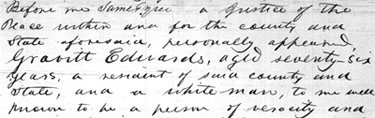 Before me James a Justice of the
Peace within and for the county and
State aforesaid, personally appeared,
Gravitt Edwards, aged seventy-six
years, a resident of said county and
State, and a white man, to me well
known to be a person of veracity and